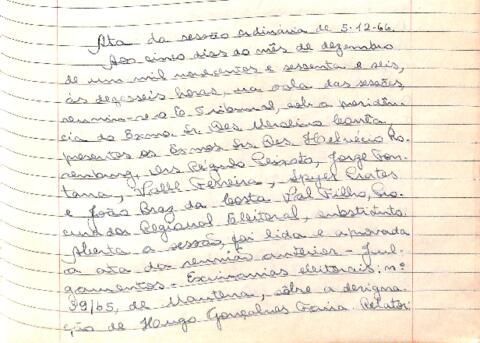 Ata da sessão ordinária de 5-12-66.
Aos cinco dias do mês de dezembro
de um mil novecentos e sessenta e seis,
às dezesseis horas, na sala das sessões,
reuniu-se o E. Tribunal, sob a presidên-
cia do Exmo. Sr. Des. Merolino Corrêa,
presentes os Exmos. Srs. Des. Helvécio Ro-
senburg, Drs. Régulo Peixoto, Jorge Fon-
tana, Valle Ferreira, Spyer Prates
e João Braz da Costa Val Filho, Pro-
curador Regional Eleitoral, substituto.
Aberta a sessão, foi lida e aprovada
a ata da reunião anterior - Jul-
gamentos - Escrivanias eleitorais: nº
39/65, de Mantena, sôbre a designa-
ção de Hugo Gonçalves Faria. Relator: